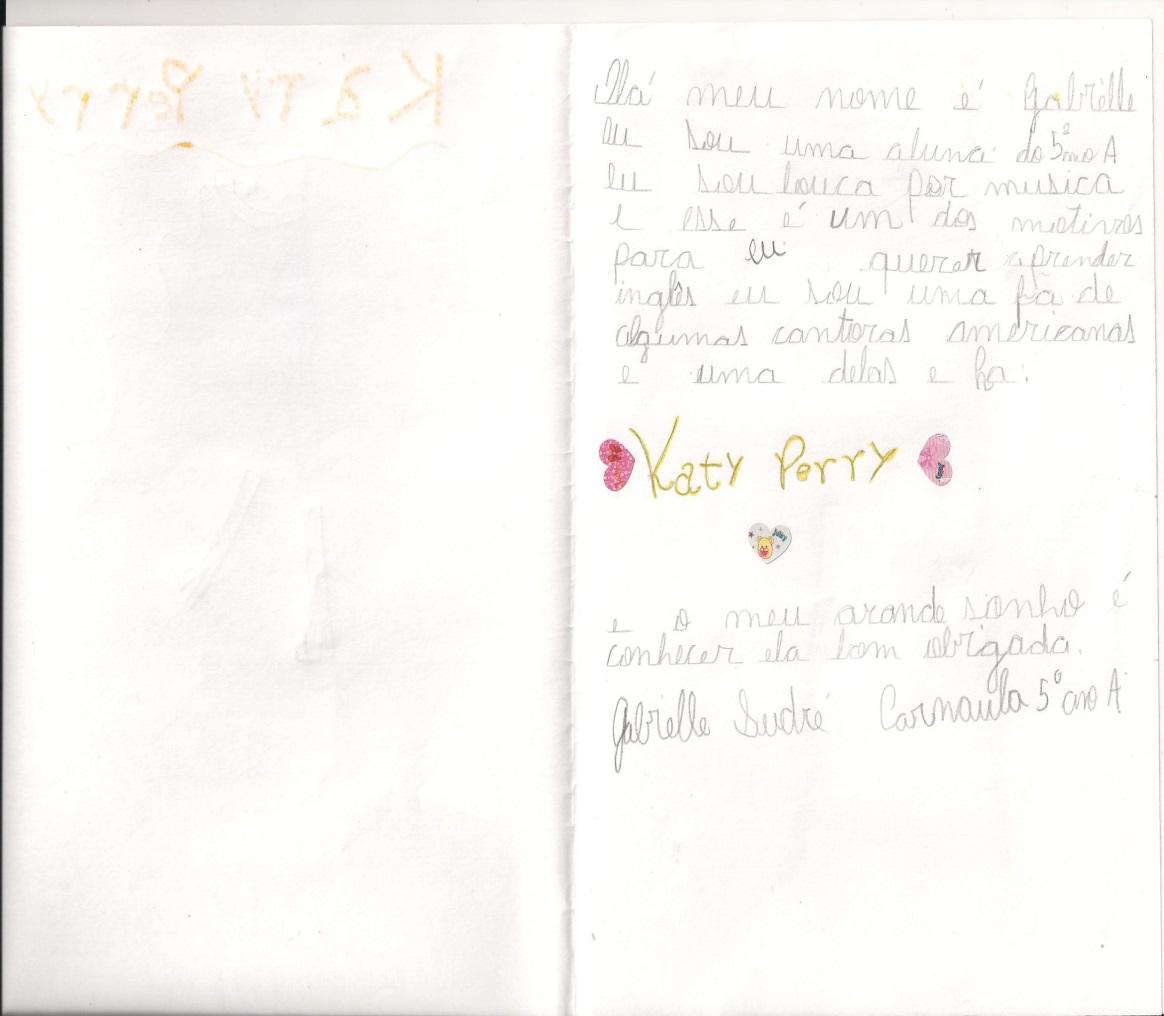 Katy Perry
Olá meu nome é Gabrielle
eu sou uma aluna do 5º ano A
eu sou louca por musica
e esse é um dos motivos
para eu querer aprender
inglês eu sou uma fã de
algumas cantoras americanas
e uma delas e ha:
Katy Perry
July
e o meu grande sonho é
conhecer ela bom obrigada.
Gabrielle Sudré Carnaula 5º ano A